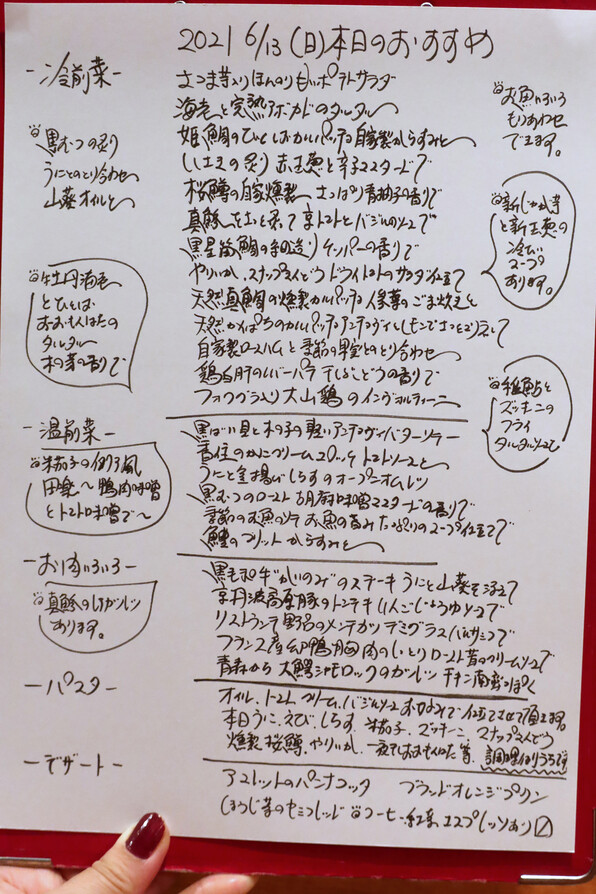 2021 6/13(日)本日のおすすめ
-冷前菜-
さつま芋入りほんのり甘いポテトサラダ
海老と完熟アボカドのタルタル
姫鯛のひとしおカルパッチョ 自家製からすみと
いしだいの炙り 赤玉葱と辛子マスタードで
桜鱒の自家燻製 さっぱり青柚子の香りで
真鯵を 炙って 京トマトとバジルのソースで
黒星笛鯛の 造り ケッパーの香りで
やりいか、スナップえんどう ドライトマトのサラダ仕立て
天然真鯛の燻製カルパッチョ 葉のごま和えと
天然かんぱちのカルパッチョ アンチョヴィとレモンでさっと 
自家製ロースハムと季節の果実とのとり合わせ
鶏 肝のレバーパテ 干しぶどうの香りで
フォワグラ入り 大山鶏のインヴォルティーニ
黒むつの炙り
うにとのとり合わせ
山葵オイルと
牡丹海老
とひとしお
おおもんはたの
タルタル
木の芽の香りで
お魚いろいろ
もりあわせ
できます。
新じゃが芋
と新玉葱の
冷たい
スープ
あります。
稚鮎と
ズッキーニの
フライ
タルタルソースで
-温前菜-
黒ばい貝と木の子の軽いアンチョヴィバターソテー
香住のかにクリームコロッケ トマトソースと
うにと釜揚げしらすのオープンオムレツ
黒むつのロースト 胡麻味噌マスタードの香りで
季節のお魚のソテー お魚の旨みたっぷりのスープ仕立てで
鱧のフリット からすみと
米茄子の 風
田楽 ～鴨肉味噌
とトマト味噌で～
-お肉いろいろ-
黒毛和牛"かいのみ"のステーキ うにと山葵を添えて
京丹波高原豚のトンテキ りんごじょうゆソースで
リストランテ野呂のメンチカツ デミグラスバルサミコで
フランス産 鴨胸肉のしっとりロースト 昔のクリームソースで
青森から 大鰐シャモロックのガーリック チキン南蛮っぽく
真鯵の ガーリック
あります。
-パスタ-
オイル、トマト、クリーム、バジルソース お好みで仕立てさせて頂きます
本日うに、えび、しらす、米茄子、ズッキーニ、スナップえんどう
燻製桜鱒、やりいか、一夜干しおおもんはた 等、調理法いろいろです
-デザート-
アメレットのパンナコッタ ブラッドオレンジプリン
ほうじ茶のセミフレッド コーヒー・紅茶 エスプレッソあり